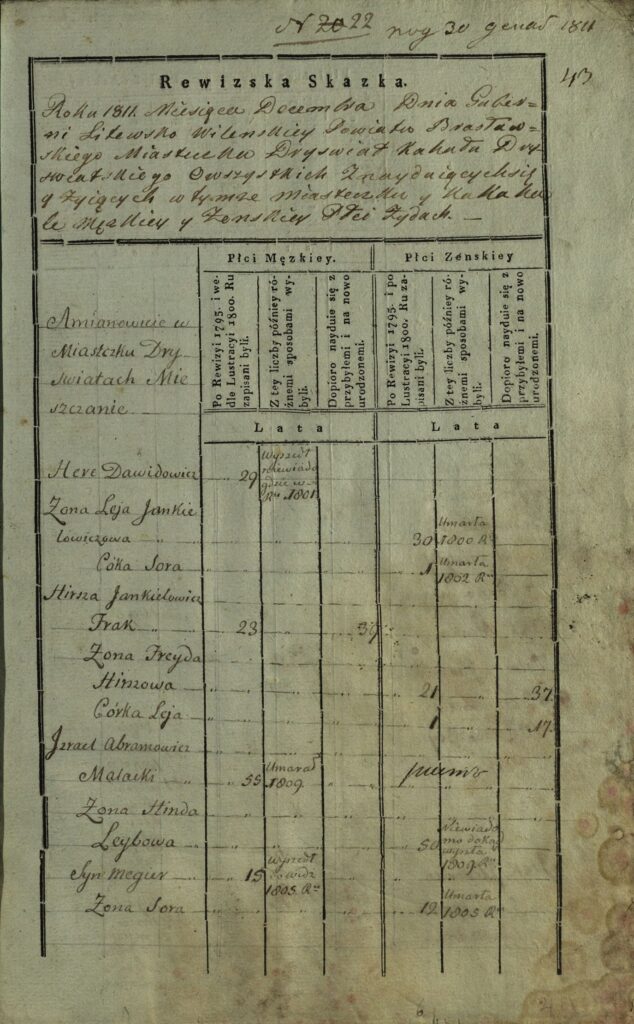 N 20 22
30 1811
43
Rewizska Skazka.
Roku 1811. Miesięca Decembra Dnia Guber=
ni Litewsko Wilenskiey Powiatu Brasław=
skiego Miasteczka Dryswiat Kahału Dry
swiatskiego O wszystkich Znayduiących się
y żyiących w tymże miasteczku y Kaha
le Męzkiey y Zenskiey Płci Żydach. —
Płci Męzkiey.
Płci Zenskiey
Amianowicie w
Miasteczku Dry
swiatach Mie
szczanie
Po Rewizyi 1795. i we-
dle Lustracyi 1800. Ru
zapisani byli.
Z tey liczby poźniey ró-
żnemi sposobami wy-
byli.
Dopioro nayduie się z
przybyłemi i na nowo
urodzonemi.
Po Rewizyi 1795. i po
Lustracyi 1800. Ru za-
pisani byli.
Z tey liczby poźniey ró-
żnemi sposobami wy-
byli.
Dopioro nayduie się z
przybyłemi i na nowo
urodzonemi.
Lata
Lata
Here Dawidowicz 29 Wyszedł niewiado gdzie w Ru 1801.
Zona Leja Jankie
lowiczowa 30 Umarła 1800 Ru
Córka Sora 1 Umarła 1802 Ru
Hirsza Jankielowicz
Frak 23 39
Zona Freyda
Hirszowa 21 37
Córka Leja 1 17
Jzrael Abramowicz
Malacki 55 Umarł 1809.
Zona Hinda
Leybowa 50 Niewiado mo dokąd wyszła 1809 Ru
Syn Megier 15 Wyszedł 1805 Ru
Zona Sora 12 Umarła 1805 Ru